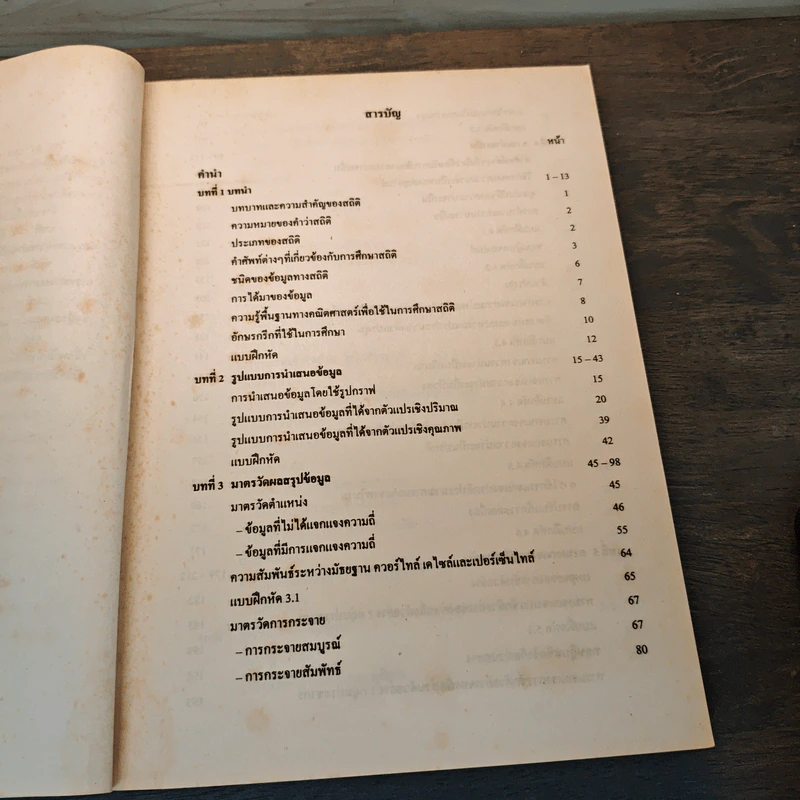 สารบัญ
หน้า
คำนำ
บทที่ 1 บทนำ 1 – 13
บทบาทและความสำคัญของสถิติ 1
ความหมายของคำว่าสถิติ 2
ประเภทของสถิติ 2
คำศัพท์ต่างๆที่เกี่ยวข้องกับการศึกษาสถิติ 3
ชนิดของข้อมูลทางสถิติ 6
การได้มาของข้อมูล 7
ความรู้พื้นฐานทางคณิตศาสตร์เพื่อใช้ในการศึกษาสถิติ 8
อักษรกรีกที่ใช้ในการศึกษา 10
แบบฝึกหัด 12
บทที่ 2 รูปแบบการนำเสนอข้อมูล 15 – 43
การนำเสนอข้อมูลโดยใช้รูปกราฟ 15
รูปแบบการนำเสนอข้อมูลที่ได้จากตัวแปรเชิงปริมาณ 20
รูปแบบการนำเสนอข้อมูลที่ได้จากตัวแปรเชิงคุณภาพ 39
แบบฝึกหัด 42
บทที่ 3 มาตรวัดผลสรุปข้อมูล 45 – 98
มาตรวัดตำแหน่ง 45
– ข้อมูลที่ไม่ได้แจกแจงความถี่ 46
– ข้อมูลที่มีการแจกแจงความถี่ 55
ความสัมพันธ์ระหว่างมัธยฐาน ควอร์ไทล์ เดไซล์และเปอร์เซ็นไทล์ 64
แบบฝึกหัด 3.1 65
มาตรวัดการกระจาย 67
– การกระจายสมบูรณ์ 67
– การกระจายสัมพัทธ์ 80